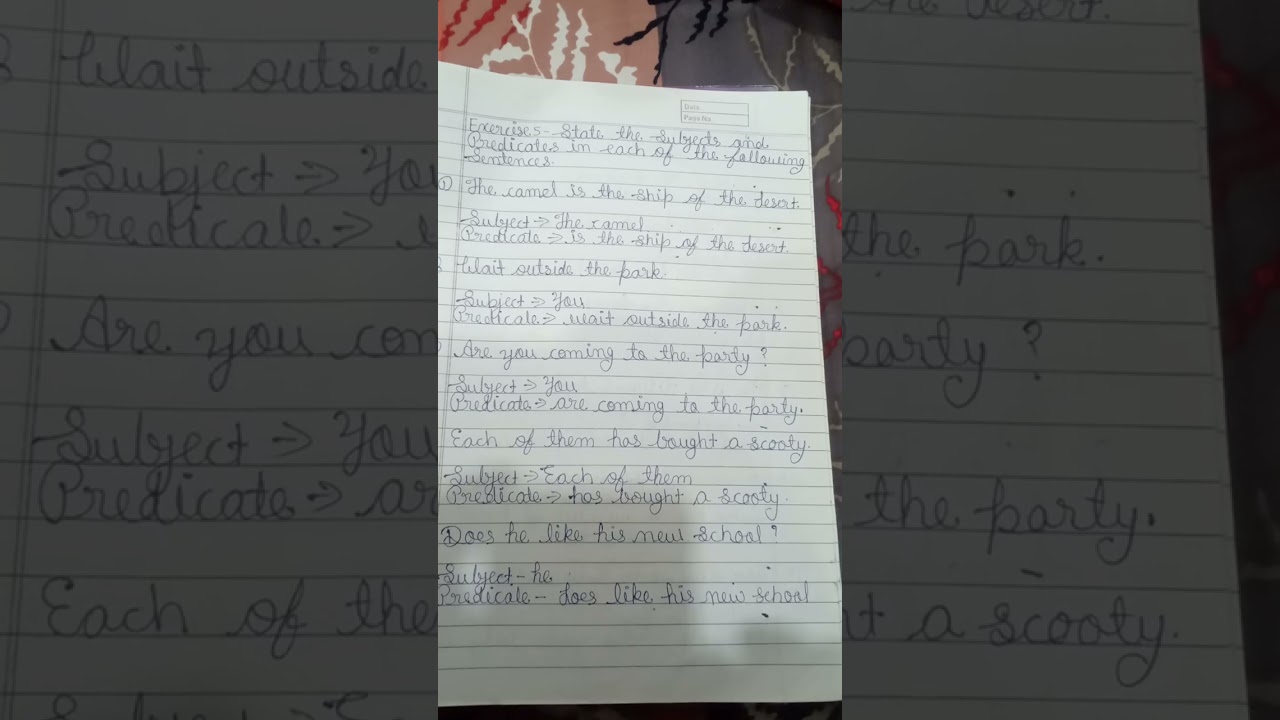 Date
Page No
Exercise 5- State the Subjects and
Predicates in each of the following
Sentences.
① The camel is the ship of the desert.
Subject → The camel
Predicate → is the ship of the desert.
Wait outside the park.
Subject → You
Predicate → wait outside the park.
Are you coming to the party?
Subject → You
Predicate → are coming to the party.
Each of them has bought a scooty.
Subject → Each of them
Predicate → has bought a scooty.
Does he like his new school?
Subject - he
Predicate - does like his new school